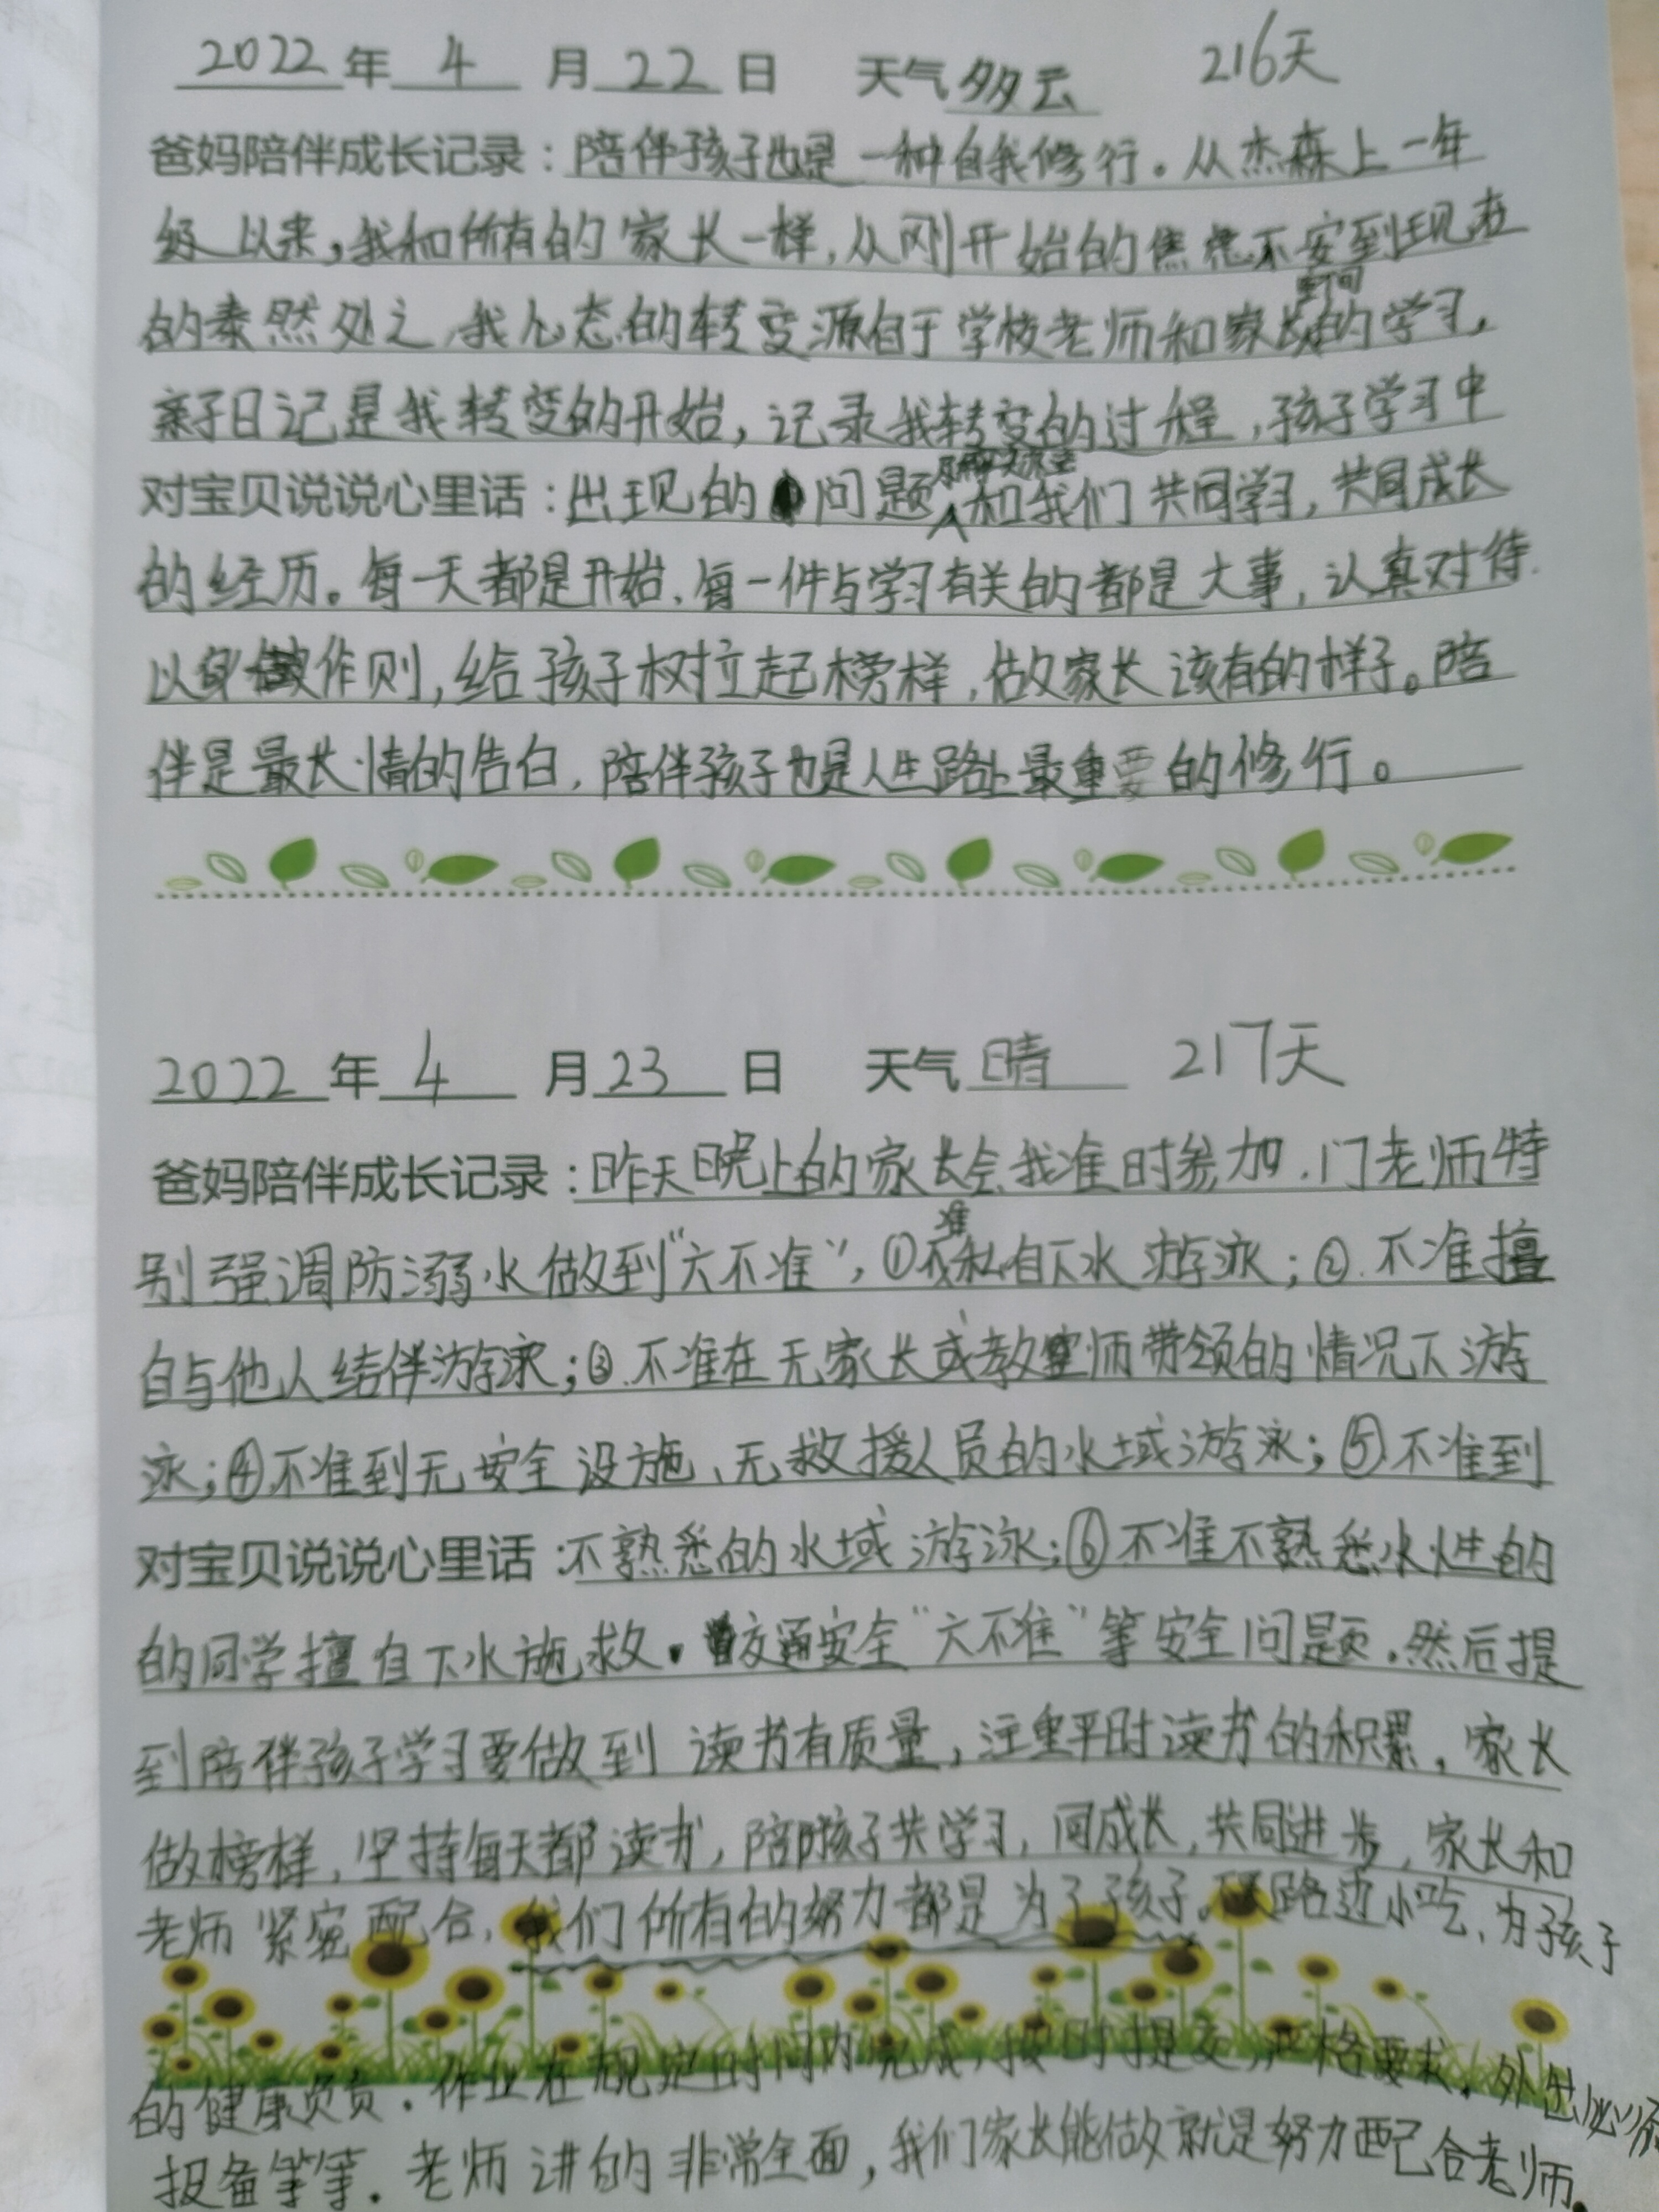 2022年 4 月 22 日 天气 多云 216天
爸妈陪伴成长记录：陪伴孩子也是一种自我修行。从杰森上一年
级以来，我和所有的家长一样，从刚开始的焦虑不安到现在
的泰然处之，我心态的转变源自于学校老师和家长的学习，
亲子日记是我转变的开始，记录我转变的过程，孩子学习中
对宝贝说说心里话：出现的问题和我们共同学习，共同成长
的经历。每一天都是开始，每一件与学习有关的都是大事，认真对待
以身作则，给孩子树立起榜样，做家长该有的样子。陪
伴是最长情的告白，陪伴孩子也是人生路上最重要的修行。
2022 年 4 月 23 日 天气 晴 217天
爸妈陪伴成长记录：昨天晚上的家长会我准时参加，门老师特
别强调防溺水做到“六不准”，①不准私自下水游泳；②.不准擅
自与他人结伴游泳；③.不准在无家长或教师带领的情况下游
泳；④不准到无安全设施、无救援人员的水域游泳；⑤不准到
对宝贝说说心里话：不熟悉的水域游泳；⑥不准不熟悉水性的
的同学擅自下水施救。交通安全“六不准”等安全问题。然后提
到陪伴孩子学习要做到读书有质量，注重平时读书的积累，家长
做榜样，坚持每天都读书，陪孩子共学习，同成长，共同进步，家长和
老师紧密配合，我们所有的努力都是为了孩子。路边小吃，为孩子
的健康负责。作业在规定时间内完成，按时提交，严格要求。外出必须
报备等等。老师讲的非常全面，我们家长能做就是努力配合老师。